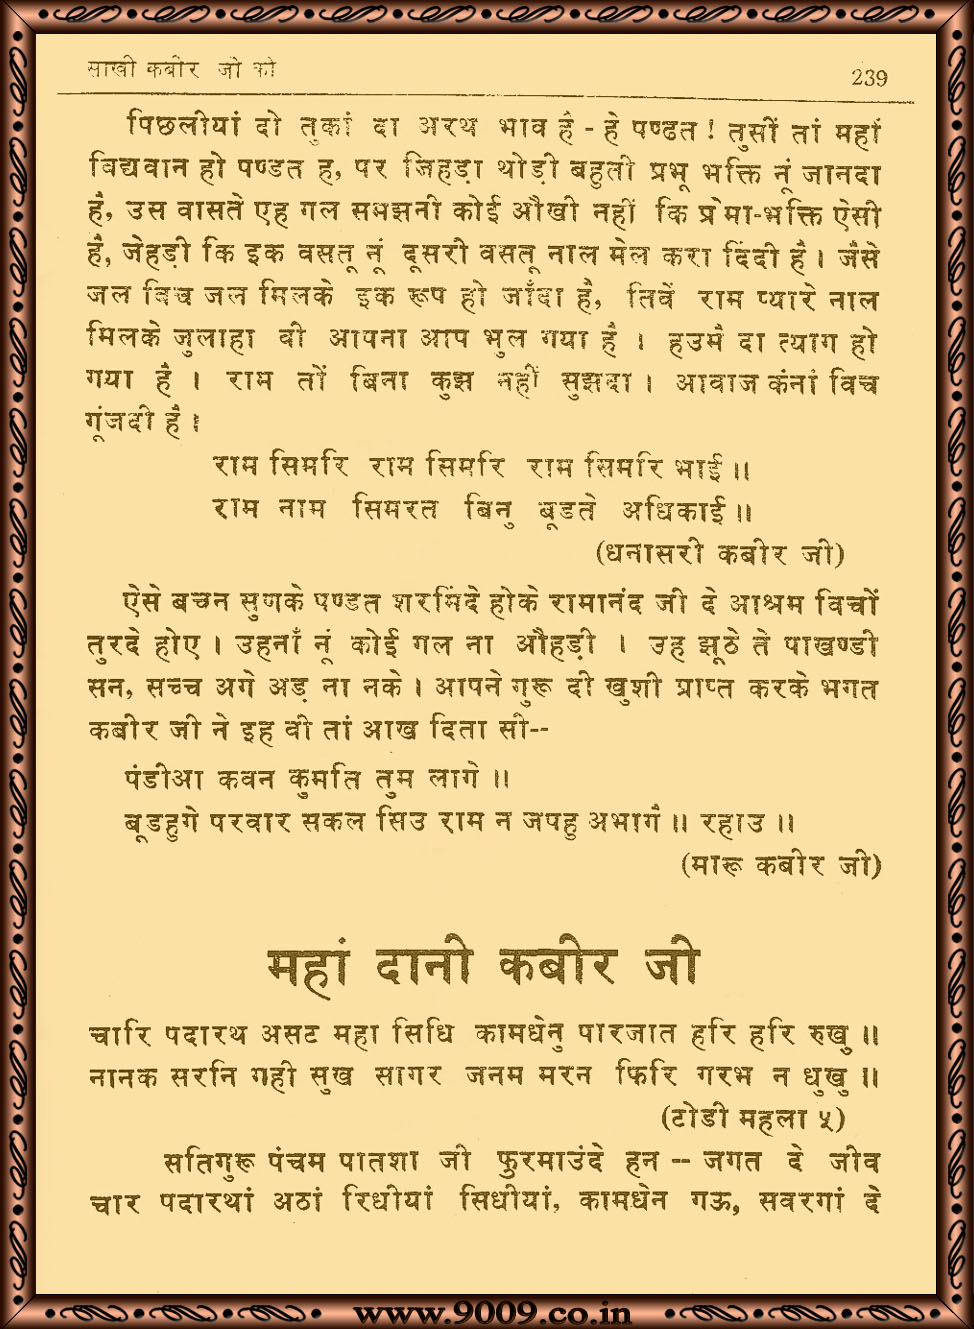 साखी कबीर जी की
239
पिछलीयां दो तुकां दा अरथ भाव है - हे पण्डत ! तुसीं तां महां
बिद्यवान हो पण्डत ह, पर जिहड़ा थोड़ी बहुती प्रभू भक्ति नूं जानदा
है, उस वासते एह गल समझनी कोई औखी नहीं कि प्रेमा-भक्ति ऐसी
है, जेहड़ी कि इक वसतू नूं दूसरी वसतू नाल मेल करा दिंदी है । जैसे
जल विच जल मिलके इक रूप हो जाँदा है, तिवें राम प्यारे नाल
मिलके जुलाहा वी आपना आप भुल गया है । हउमै दा त्याग हो
गया है । राम तों बिना कुझ नहीं सुझदा । आवाज कंनां विच
गूंजदी है ।
राम सिमरि राम सिमरि राम सिमरि भाई ॥
राम नाम सिमरत बिनु बूडते अधिकाई ॥
(धनासरी कबीर जी)
ऐसे बचन सुणके पण्डत शरमिंदे होके रामानंद जी दे आश्रम विचों
तुरदे होए । उहनाँ नूं कोई गल ना औहड़ी । उह झूठे ते पाखण्डी
सन, सच्च अगे अड़ ना नके । आपने गुरू दी खुशी प्राप्त करके भगत
कबीर जी ने इह वी तां आख दिता सी--
पंडीआ कवन कुमति तुम लागे ॥
बूडहुगे परवार सकल सिउ राम न जपहु अभागै ॥ रहाउ ॥
(मारू कबीर जी)
महां दानी कबीर जी
चारि पदारथ असट महा सिधि कामधेनु पारजात हरि हरि रुखु ॥
नानक सरनि गही सुख सागर जनम मरन फिरि गरभ न धुखु ॥
(टोडी महला ५)
सतिगुरू पंचम पातशा जी फुरमाउंदे हन -- जगत दे जीव
चार पदारथां अठां रिधीयां सिधीयां, कामधेन गऊ, सवरगां दे
www.9009.co.in